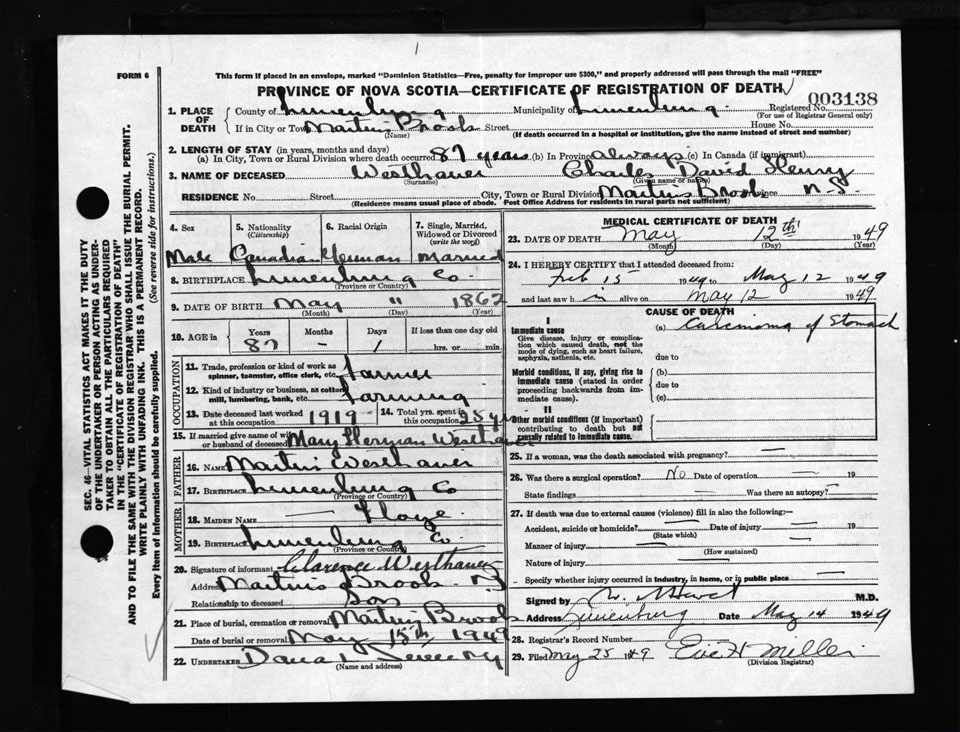 FORM 6
This form if placed in an envelope, marked "Dominion Statistics—Free, penalty for improper use $300," and properly addressed will pass through the mail "FREE"
PROVINCE OF NOVA SCOTIA—CERTIFICATE OF REGISTRATION OF DEATH
003138
1. PLACE OF DEATH County of Lunenburg Municipality of Lunenburg Registered No. (For use of Registrar General only)
If in City or Town Martins Brook (Name) Street House No.
(If death occurred in a hospital or institution, give the name instead of street and number)
2. LENGTH OF STAY (in years, months and days)
(a) In City, Town or Rural Division where death occurred 87 years (b) In Province always (c) In Canada (if immigrant)
3. NAME OF DECEASED Westhaver (Surname) Charles David Henry (Given name or names)
RESIDENCE No. Street City, Town or Rural Division Martins Brook Province N.S.
(Residence means usual place of abode. Post Office Address for residents in rural parts not sufficient)
4. Sex Male
5. Nationality (Citizenship) Canadian
6. Racial Origin German
7. Single, Married, Widowed or Divorced (write the word) Married
8. BIRTHPLACE Lunenburg Co (Province or Country)
9. DATE OF BIRTH May (Month) 11 (Day) 1862 (Year)
10. AGE in Years 87 Months — Days 1 If less than one day old hrs. or min.
OCCUPATION
11. Trade, profession or kind of work as spinner, teamster, office clerk, etc. Farmer
12. Kind of industry or business, as cotton mill, lumbering, bank, etc. Farming
13. Date deceased last worked at this occupation 1919
14. Total yrs. spent in this occupation 25 yrs
15. If married give name of wife or husband of deceased Mary Herman Westhaver
FATHER
16. NAME Martin Westhaver
17. BIRTHPLACE Lunenburg Co (Province or Country)
MOTHER
18. MAIDEN NAME —
19. BIRTHPLACE Lunenburg Co. (Province or Country)
20. Signature of informant Clarence Westhaver
Address Martins Brook
Relationship to deceased Son
21. Place of burial, cremation or removal Martins Brook
Date of burial or removal May 15th 1949
22. UNDERTAKER (Name and address)
MEDICAL CERTIFICATE OF DEATH
23. DATE OF DEATH May (Month) 12th (Day) 1949 (Year)
24. I HEREBY CERTIFY that I attended deceased from:
Feb 15 1949 to May 12 1949
and last saw him alive on May 12 1949
CAUSE OF DEATH
I
Immediate cause (a) Carcinoma of Stomach
Give disease, injury or complication which caused death, not the mode of dying, such as heart failure, asphyxia, asthenia, etc. due to
Morbid conditions, if any, giving rise to immediate cause (stated in order of proceeding backwards from immediate cause). (b) due to (c)
II
Other morbid conditions (if important) contributing to death but not causally related to immediate cause.
25. If a woman, was the death associated with pregnancy? —
26. Was there a surgical operation? No Date of operation — 19
State findings — Was there an autopsy? —
27. If death was due to external causes (violence) fill in also the following:—
Accident, suicide or homicide? — (State which) Date of injury — 19
Manner of injury — (How sustained)
Nature of injury —
Specify whether injury occurred in industry, in home, or in public place —
Signed by M.D.
Address Lunenburg Date May 14 1949
28. Registrar's Record Number
29. Filed May 25 1949 Miller (Division Registrar)
SEC. 46—VITAL STATISTICS ACT MAKES IT THE DUTY
OF THE UNDERTAKER OR PERSON ACTING AS UNDERTAKER TO OBTAIN ALL THE PARTICULARS REQUIRED
IN THE "CERTIFICATE OF REGISTRATION OF DEATH"
AND TO FILE THE SAME WITH THE DIVISION REGISTRAR WHO SHALL ISSUE THE BURIAL PERMIT.
WRITE PLAINLY WITH UNFADING INK. THIS IS A PERMANENT RECORD.
Every item of information should be carefully supplied. (See reverse side for instructions.)